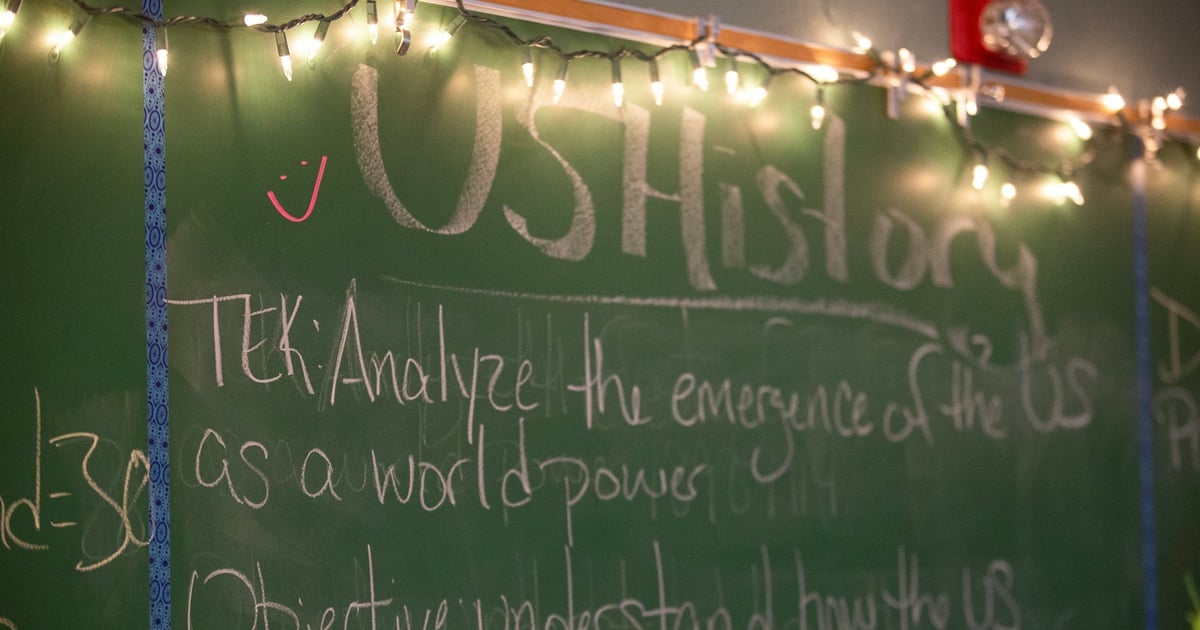 US History
TEK: Analyze the emergence of the US
as a world power
Objective understand how the US